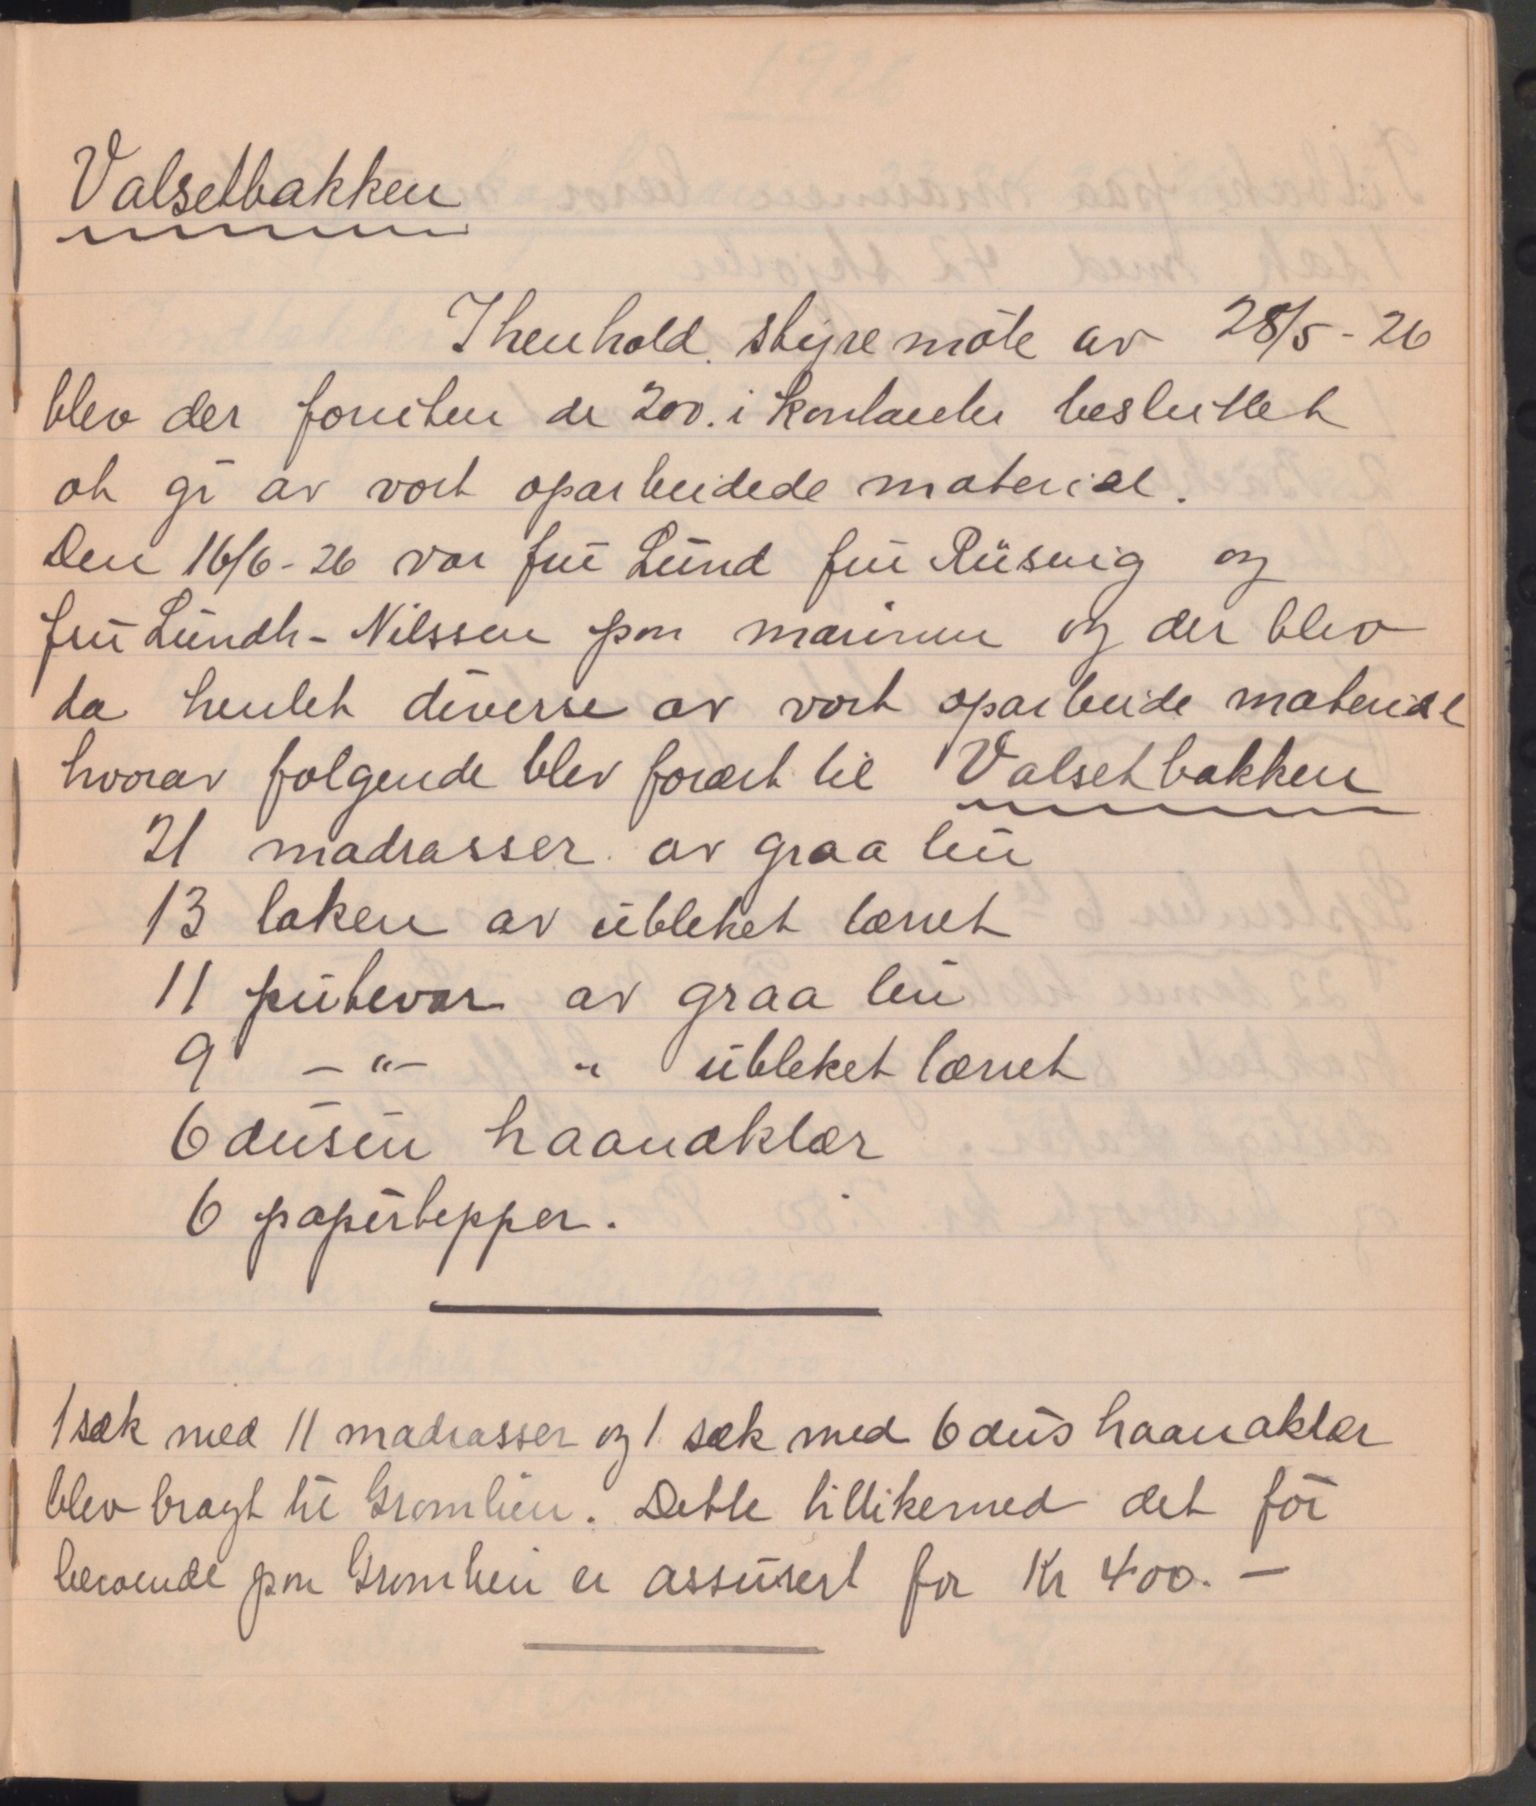 Valsetbakken
I henhold styremöte av 28/5-26
blev der foruten de 200. i kontanter besluttet
at gi av vort oparbeidede material.
Den 16/6-26 var fru Lund fru Rüsvig og
fru Lundh-Nilssen paa marinen og der blev
da hentet diverse av vort oparbeide material
hvorav følgende blev forært til Valsetbakken
21 madrasser av graa lin
13 laken av ubleket lærret
11 putevar av graa lin
9 -"- " ubleket lærret
6 dusin haandklær
6 papirtepper.
1 sæk med 11 madrasser og 1 sæk med 6 dus haandklær
blev bragt til Gromlien. Dette tillikemed det för
beroende paa Gromlien er assurert for Kr 400.-